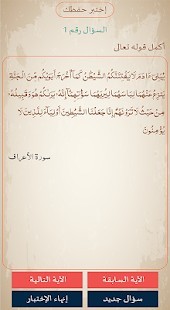 إختبر حفظك
السؤال رقم 1
أكمل قوله تعالى
يَٰبَنِىٓ ءَادَمَ لَا يَفْتِنَنَّكُمُ ٱلشَّيْطَٰنُ كَمَآ أَخْرَجَ أَبَوَيْكُم مِّنَ ٱلْجَنَّةِ
يَنزِعُ عَنْهُمَا لِبَاسَهُمَا لِيُرِيَهُمَا سَوْءَٰتِهِمَآ إِنَّهُۥ يَرَىٰكُمْ هُوَ وَقَبِيلُهُۥ
مِنْ حَيْثُ لَا تَرَوْنَهُمْ إِنَّا جَعَلْنَا ٱلشَّيَٰطِينَ أَوْلِيَآءَ لِلَّذِينَ لَا
يُؤْمِنُونَ
سورة الأعراف
الآية السابقة
الآية التالية
سؤال جديد
إنهاء الإختبار